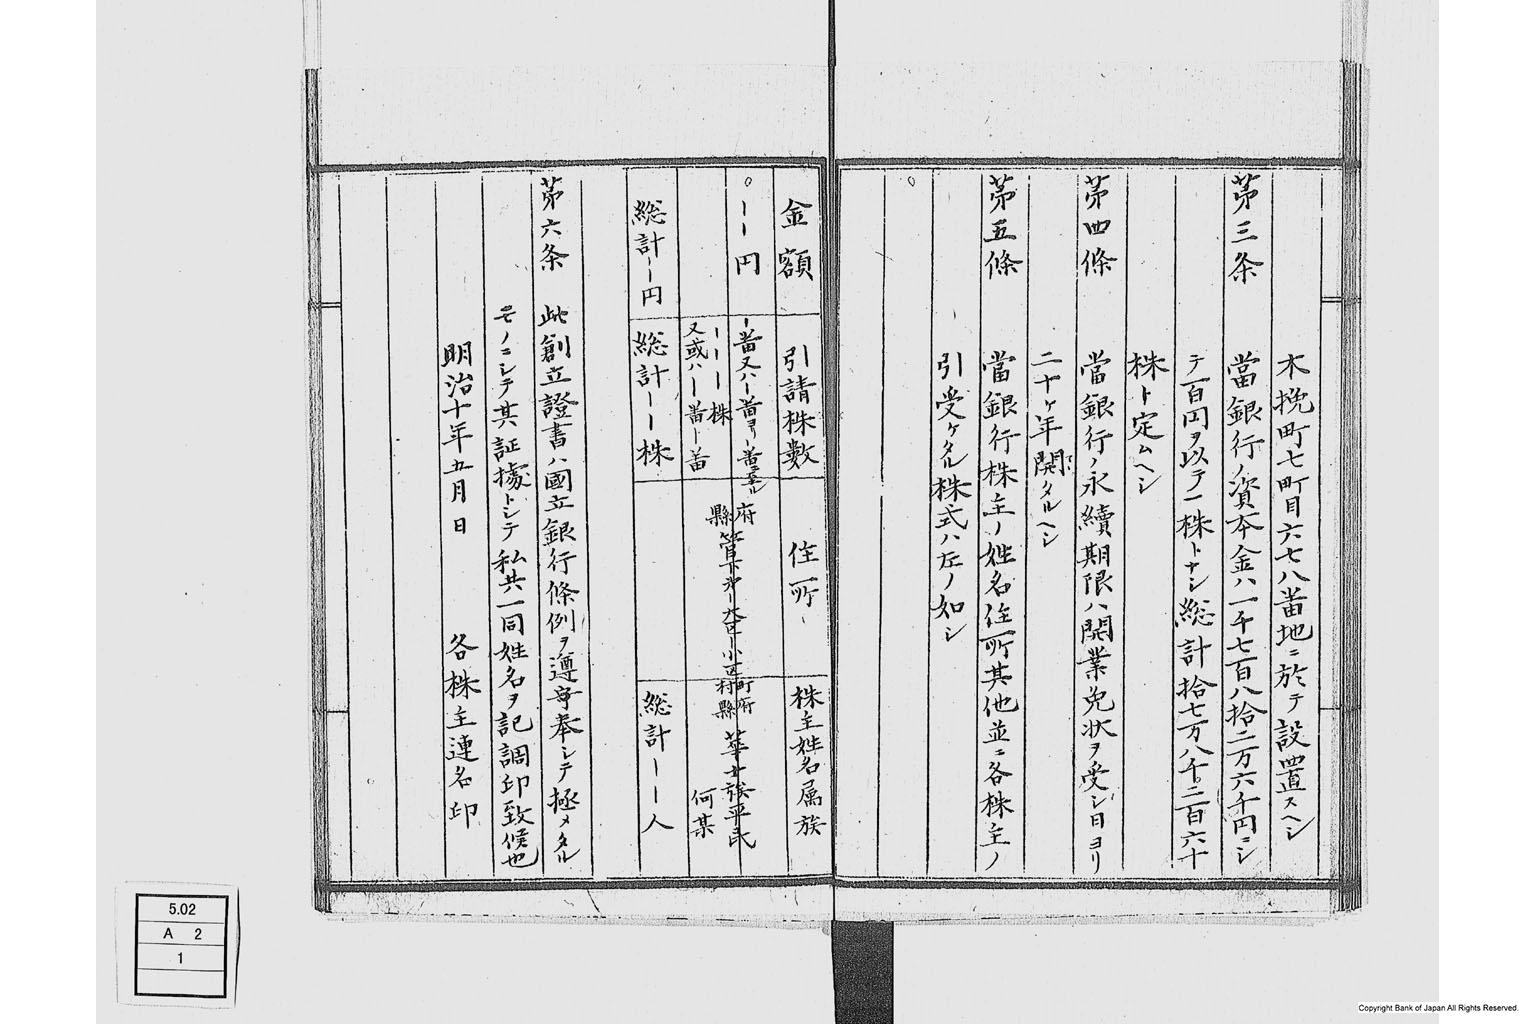 木挽町七町目六七八番地ニ於テ設置スヘシ
第三条 當銀行ノ資本金ハ一千七百八拾二万六千円ニシ
テ一百円ヲ以テ一株トナシ総計拾七万八千二百六十
株ト定ムヘシ
第四條 當銀行ノ永續期限ハ開業免状ヲ受シ日ヨリ
二十ケ年間タルヘシ
第五條 當銀行株主ノ姓名住所其他並ニ各株主ノ
引受ケタル株式ハ左ノ如シ
金額 引請株数 住所 株主姓名属族
〡〡円 〡番又ハ〡番ヨリ〡番ニ至ル 府 町 府
〡〡〡株 縣 管下第〡大区〡小区 村 縣 華士族平民
又或ハ〡番〡番 何某
総計〡〡円 総計〡〡株 総計〡〡人
第六条 此創立證書ハ國立銀行條例ヲ遵守奉シテ極メタル
モノニシテ其証據トシテ私共一同姓名ヲ記調印致候也
明治十年五月日 各株主連名印
5.02
A 2
1
Copyright Bank of Japan All Rights Reserved.